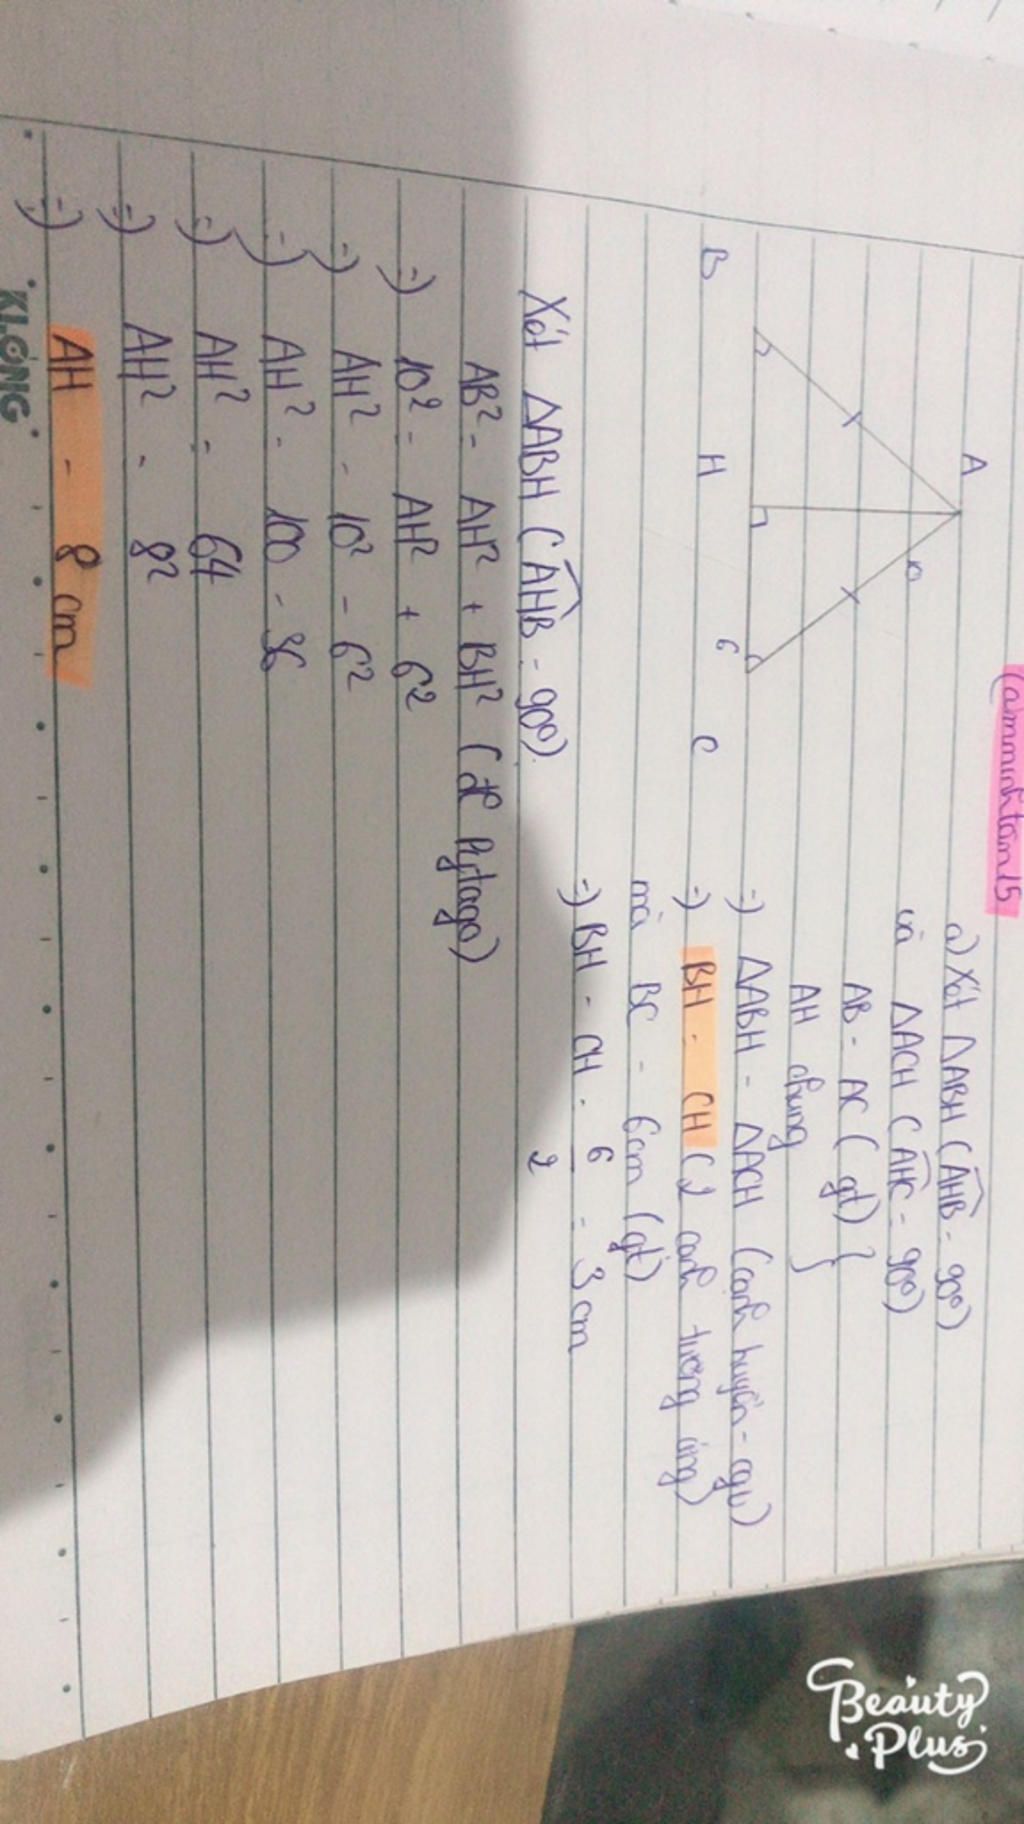 (amminhtan15
A
10
B
H
6
C
a) Xét ΔABH (AHB = 90⁰)
và ΔACH (AHC = 90⁰)
AB = AC (gt) }
AH chung
=) ΔABH = ΔACH (cạnh huyền - cgv)
=) BH = CH (2 cạnh tương ứng)
mà BC = 6cm (gt)
=) BH = CH = 6/2 = 3 cm
Xét ΔABH (AHB = 90⁰)
AB² = AH² + BH² (đl Pytago)
=) 10² = AH² + 6²
=) AH² = 10² - 6²
=) AH² = 100 - 36
=) AH² = 64
=) AH² = 8²
=) AH = 8 cm
KLONG
Beauty
Plus